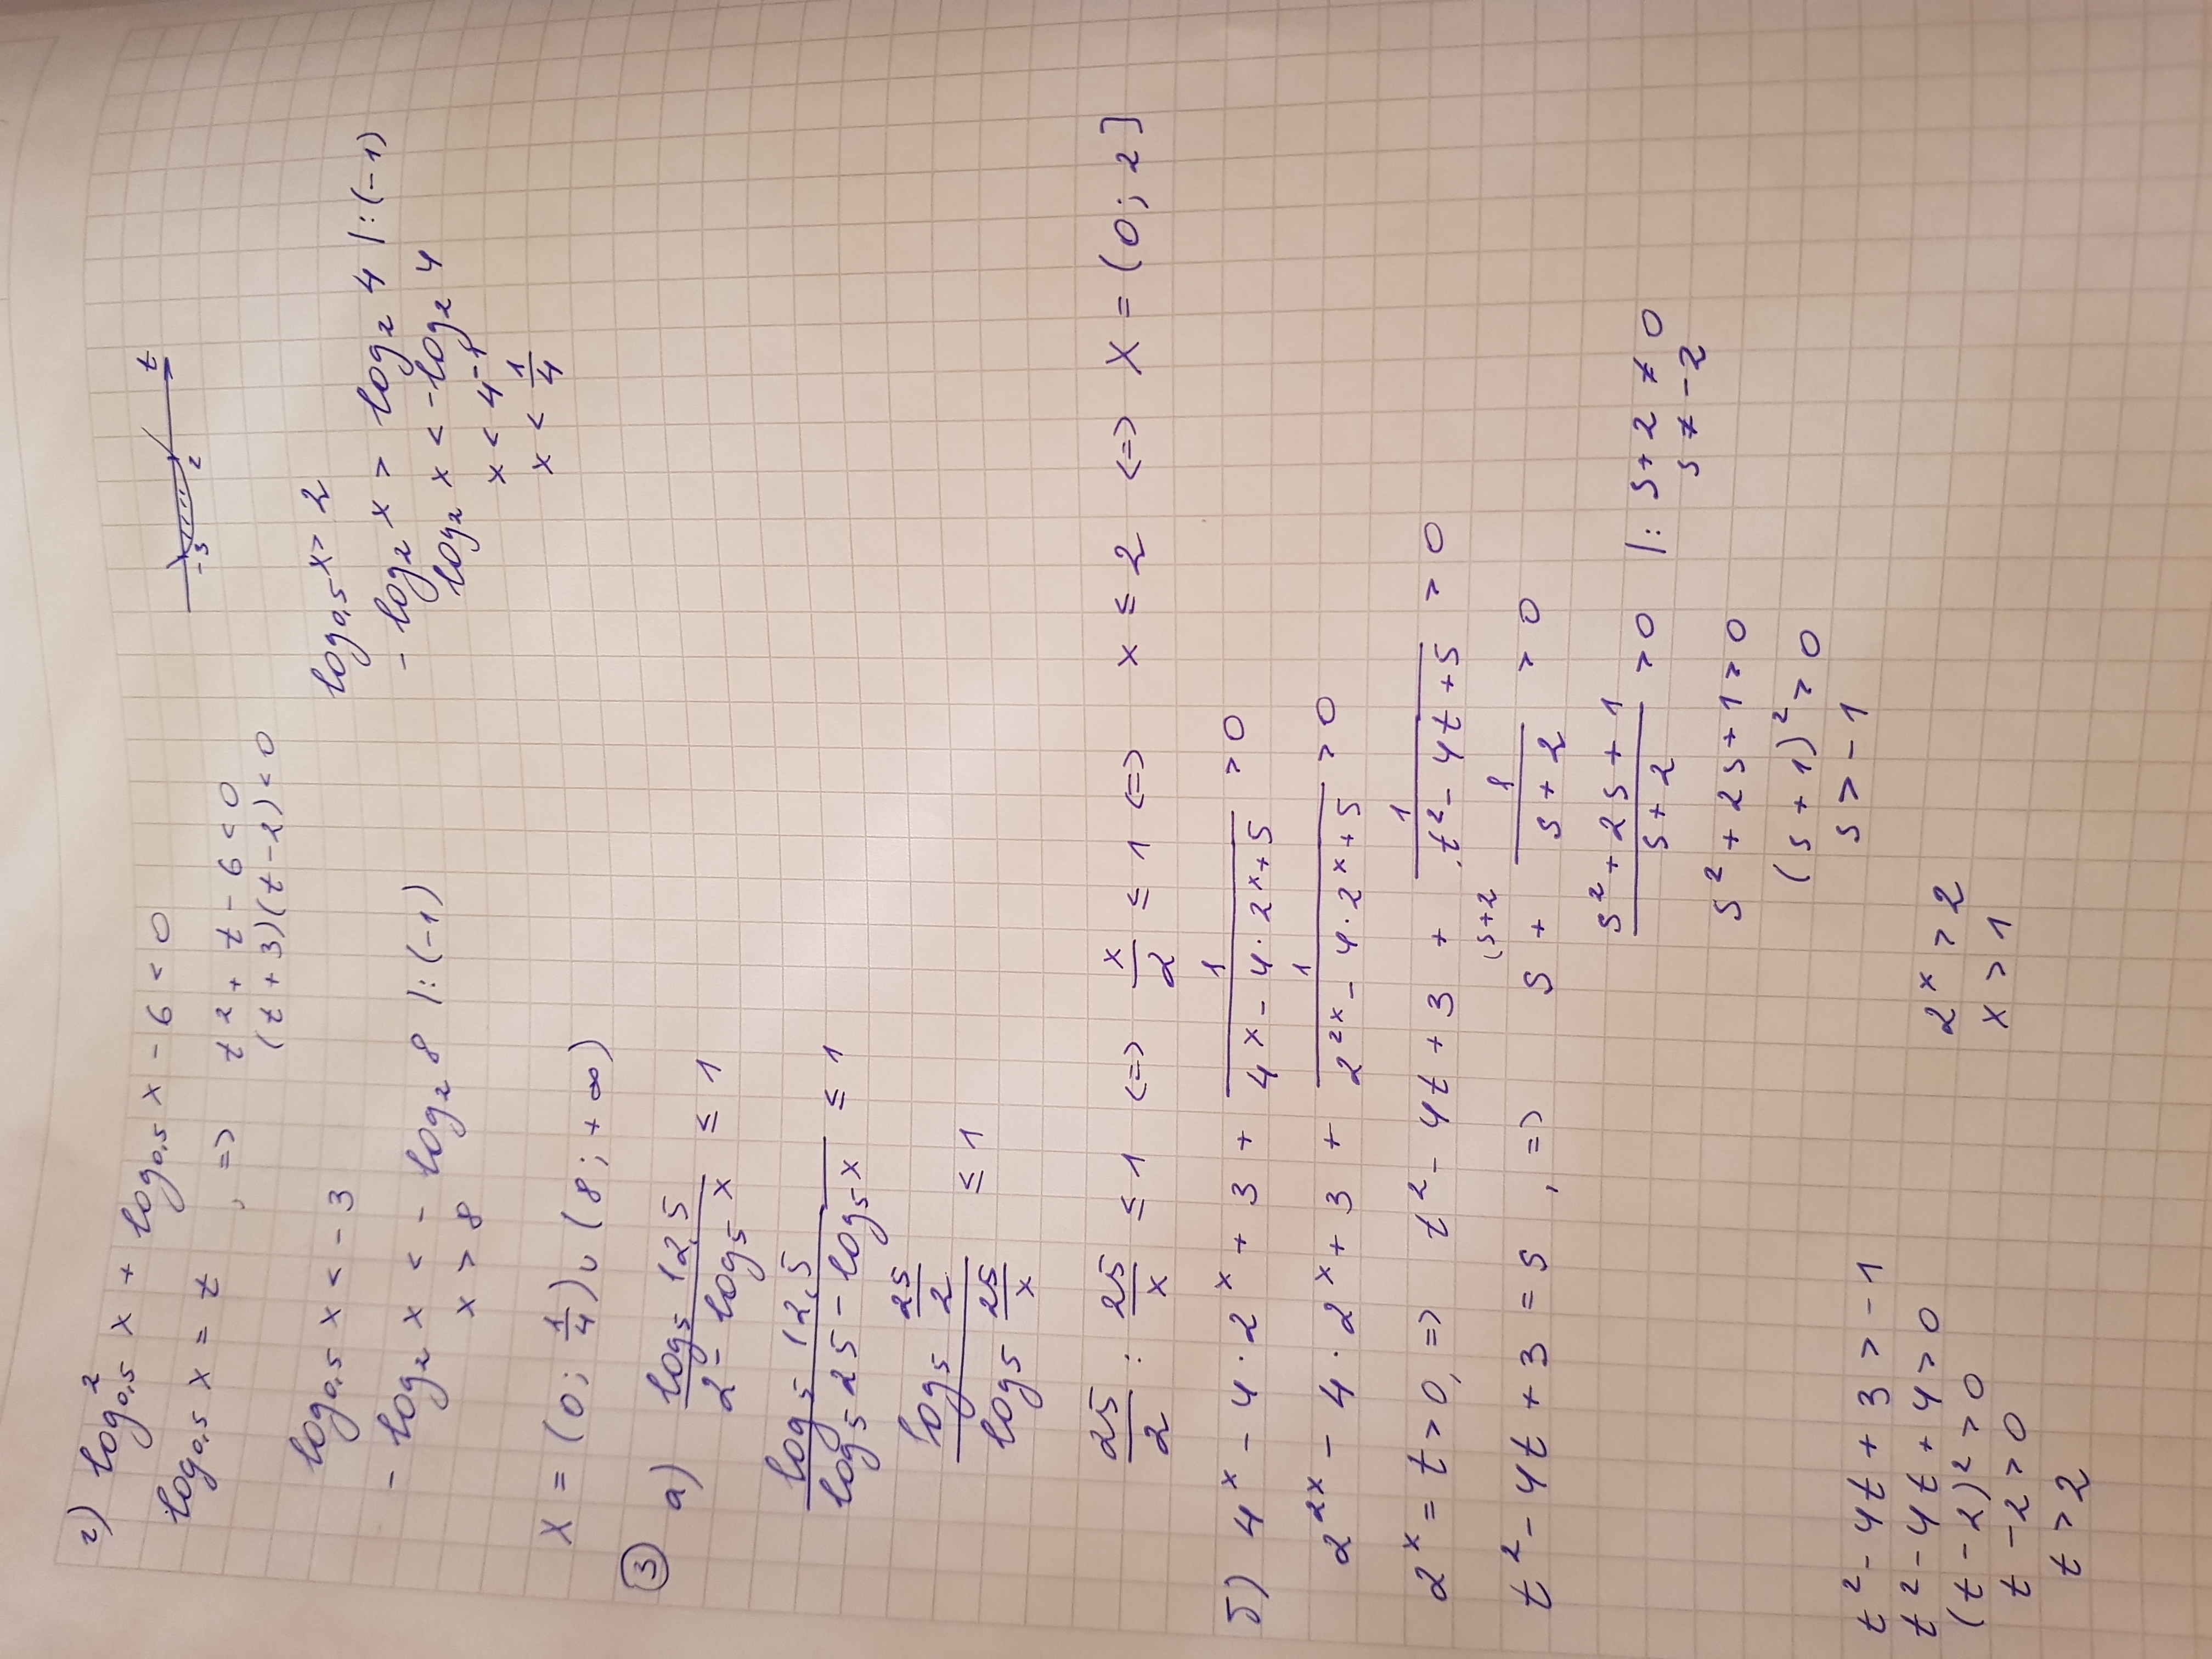 г) log²₀,₅ x + log₀,₅ x - 6 < 0
log₀,₅ x = t , => t² + t - 6 < 0
(t + 3)(t - 2) < 0
-3 2 t
log₀,₅ x < -3 log₀,₅ x > 2
- log₂ x < - log₂ 8 |: (-1) - log₂ x > log₂ 4 |: (-1)
x > 8 log₂ x < - log₂ 4
x < 4⁻¹
x < 1/4
X = (0; 1/4) ∪ (8; +∞)
③ а) log₅ 12,5 / (2 - log₅ x) ≤ 1
log₅ 12,5 / (log₅ 25 - log₅ x) ≤ 1
log₅ 25/2 / log₅ 25/x ≤ 1
25/2 : 25/x ≤ 1 <=> x/2 ≤ 1 <=> x ≤ 2 <=> X = (0; 2]
б) 4ˣ - 4 · 2ˣ + 3 + 1/(4ˣ - 4 · 2ˣ + 5) > 0
2²ˣ - 4 · 2ˣ + 3 + 1/(2²ˣ - 4 · 2ˣ + 5) > 0
2ˣ = t > 0, => t² - 4t + 3 + 1/(t² - 4t + 5) > 0
t² - 4t + 3 = s , => s + 1/(s + 2) > 0
(s+2
(s² + 2s + 1)/(s + 2) > 0 |: s + 2 ≠ 0
s ≠ -2
s² + 2s + 1 > 0
(s + 1)² > 0
s > -1
t² - 4t + 3 > -1
t² - 4t + 4 > 0
(t - 2)² > 0
t - 2 > 0
t > 2
2ˣ > 2
x > 1